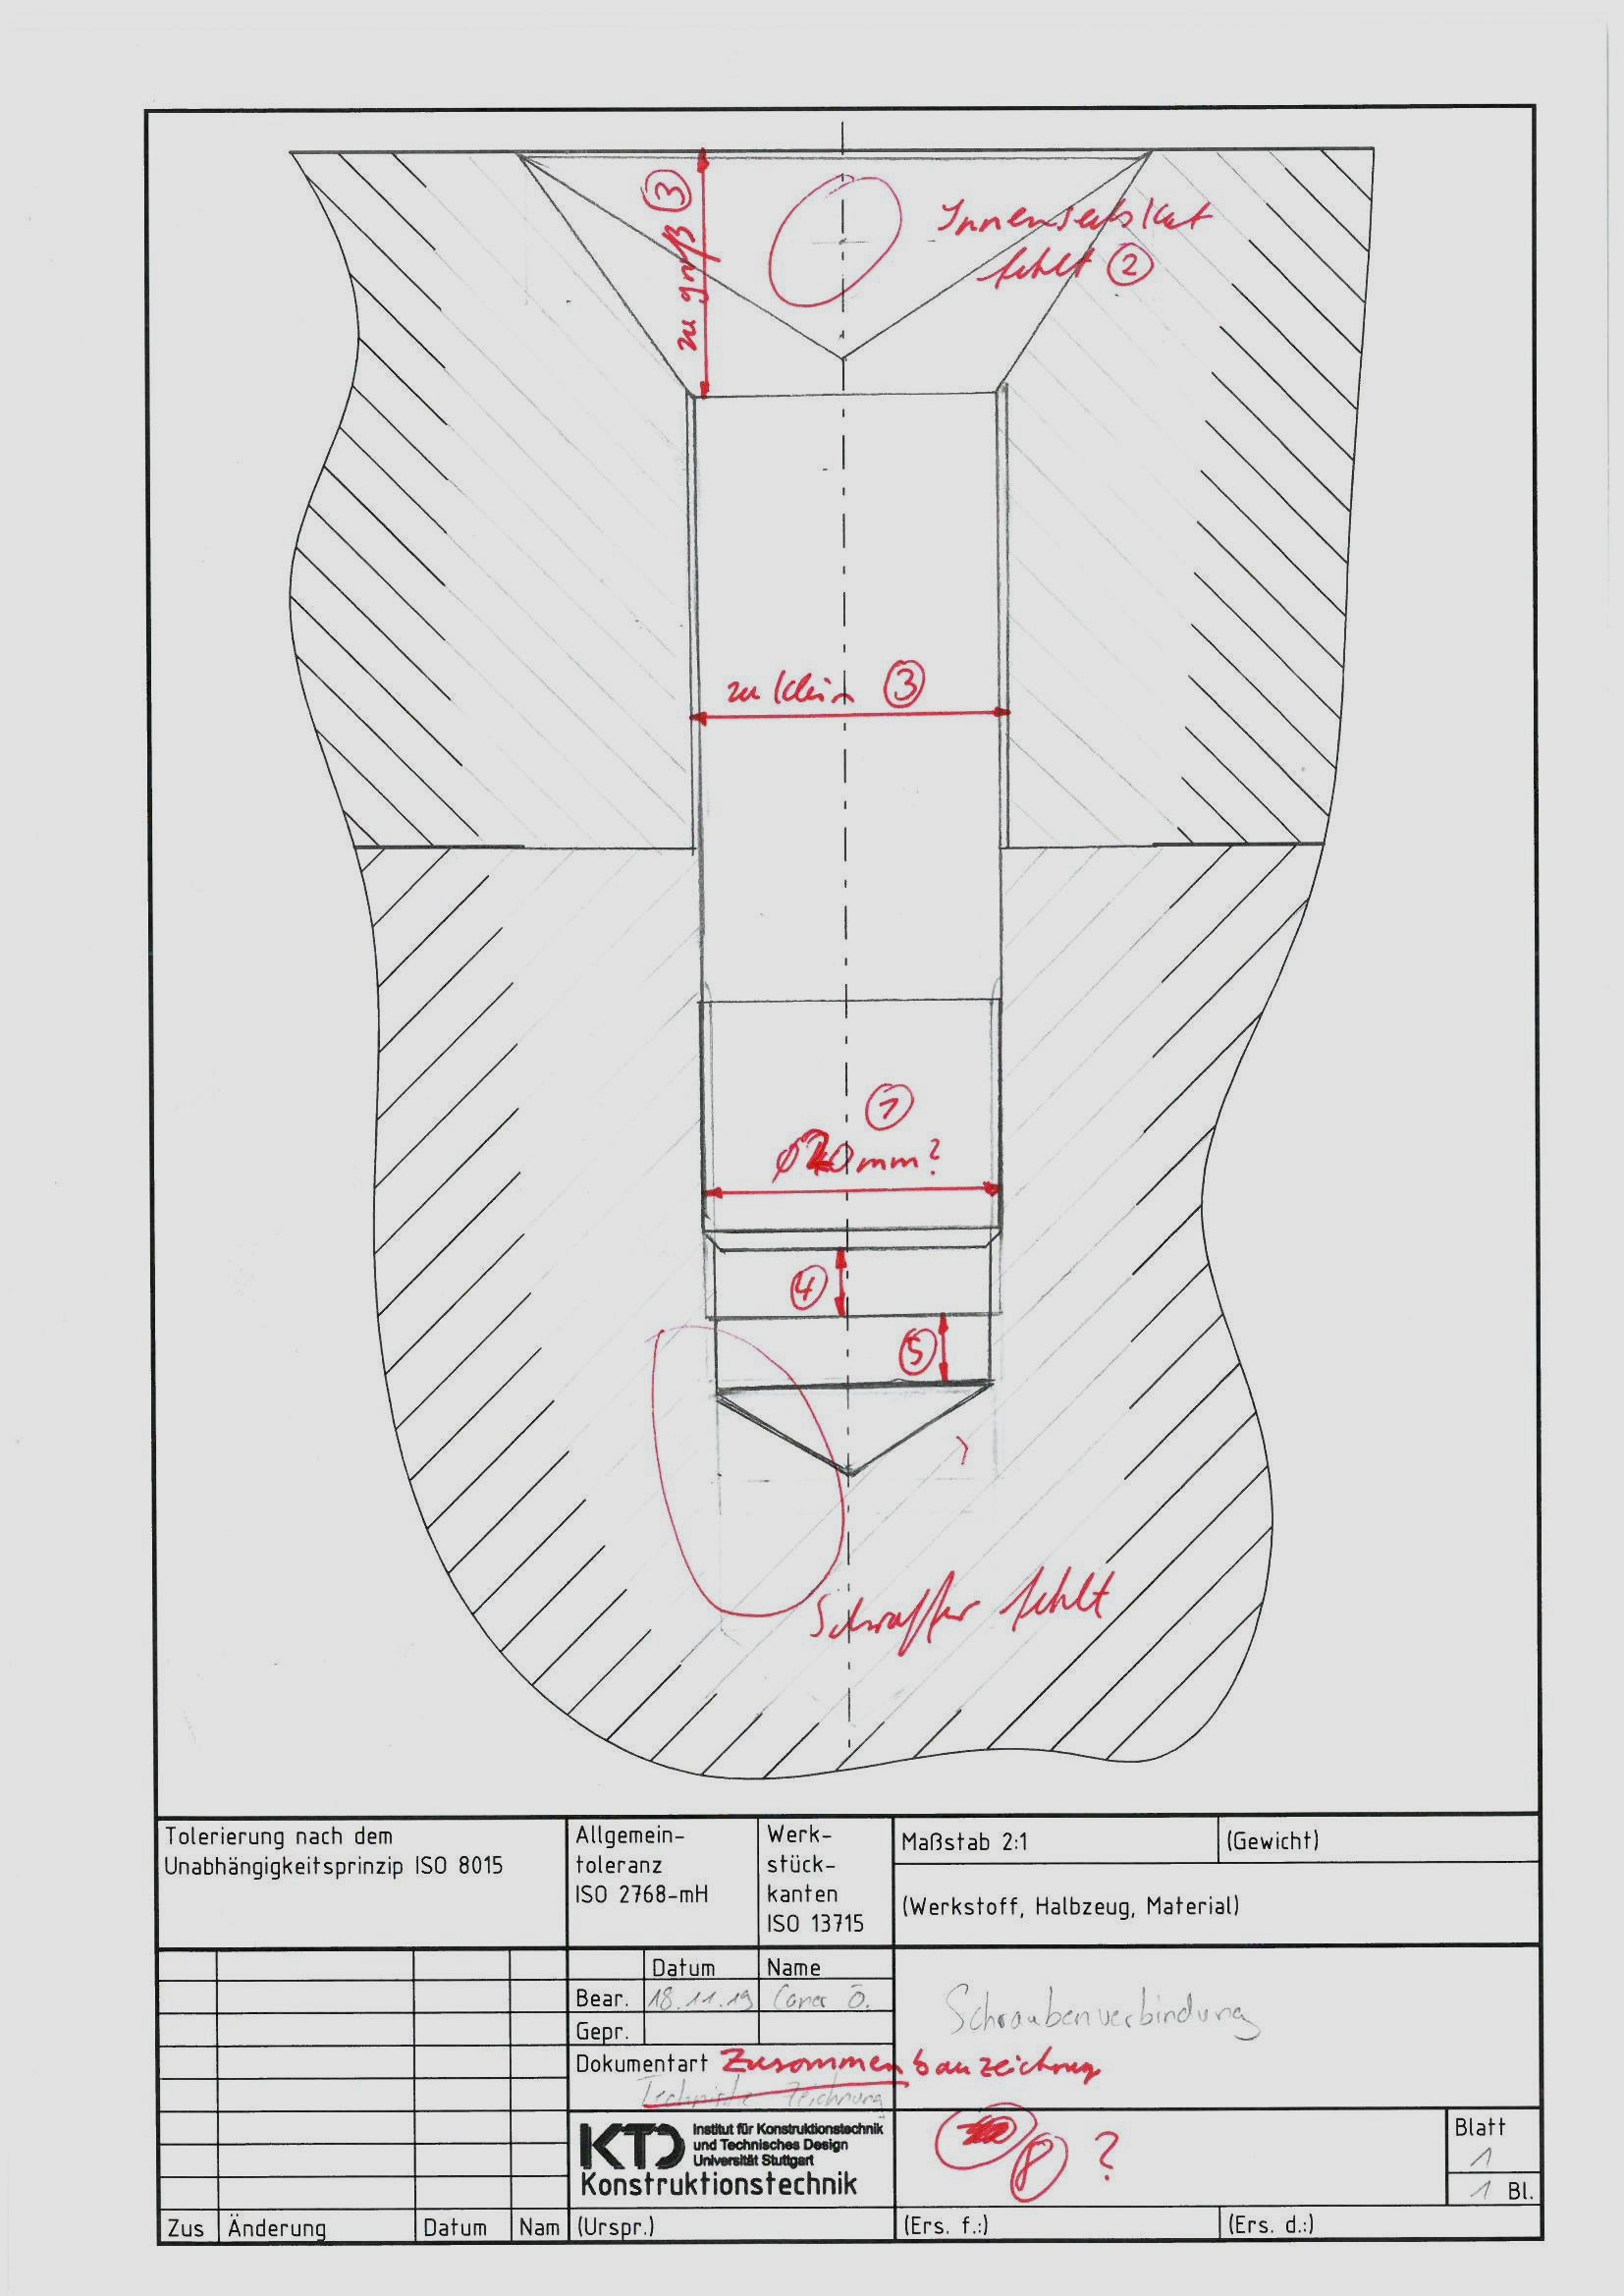 zu groß ③
Innensechskat
fehlt ②
zu klein ③
①
⌀20mm?
④
⑤
Schraffur fehlt
Tolerierung nach dem
Unabhängigkeitsprinzip ISO 8015
Allgemein-
toleranz
ISO 2768-mH
Werk-
stück-
kanten
ISO 13715
Maßstab 2:1
(Gewicht)
(Werkstoff, Halbzeug, Material)
Datum Name
Bear. 18.11.19 Caner Ö.
Gepr.
Schraubenverbindung
Dokumentart Zusammenbauzeichnung
Technische Zeichnung
KTD Institut für Konstruktionstechnik
und Technisches Design
Universität Stuttgart
Konstruktionstechnik
8 ?
Blatt
1
1 Bl.
Zus Änderung Datum Nam (Urspr.) (Ers. f.:) (Ers. d.:)